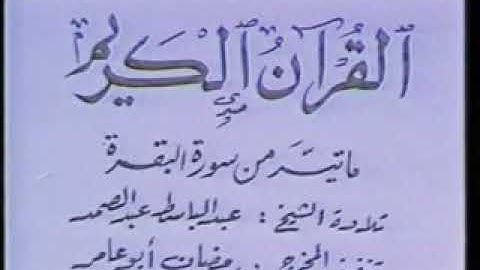 ٱلقُرآنُ ٱلْكَرِيم
ما تيسَّر من سورة البقرة
تلاوة الشيخ : عبدالباسط عبدالصمد
المخرج : رمضان أبوعامر